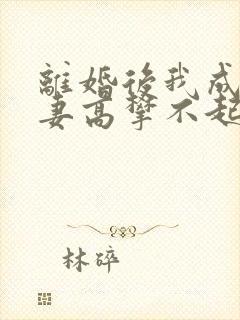 離婚後我成
妻高攀不起
林碎